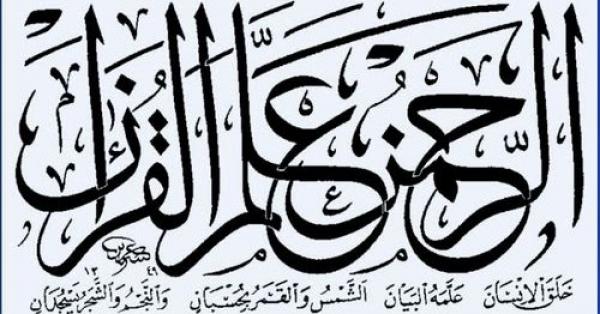 الرَّحْمٰنُ عَلَّمَ الْقُرْاٰنَ
خَلَقَ الْاِنْسَانَ عَلَّمَهُ الْبَيَانَ اَلشَّمْسُ وَالْقَمَرُ بِحُسْبَانٍ وَالنَّجْمُ وَالشَّجَرُ يَسْجُدَانِ